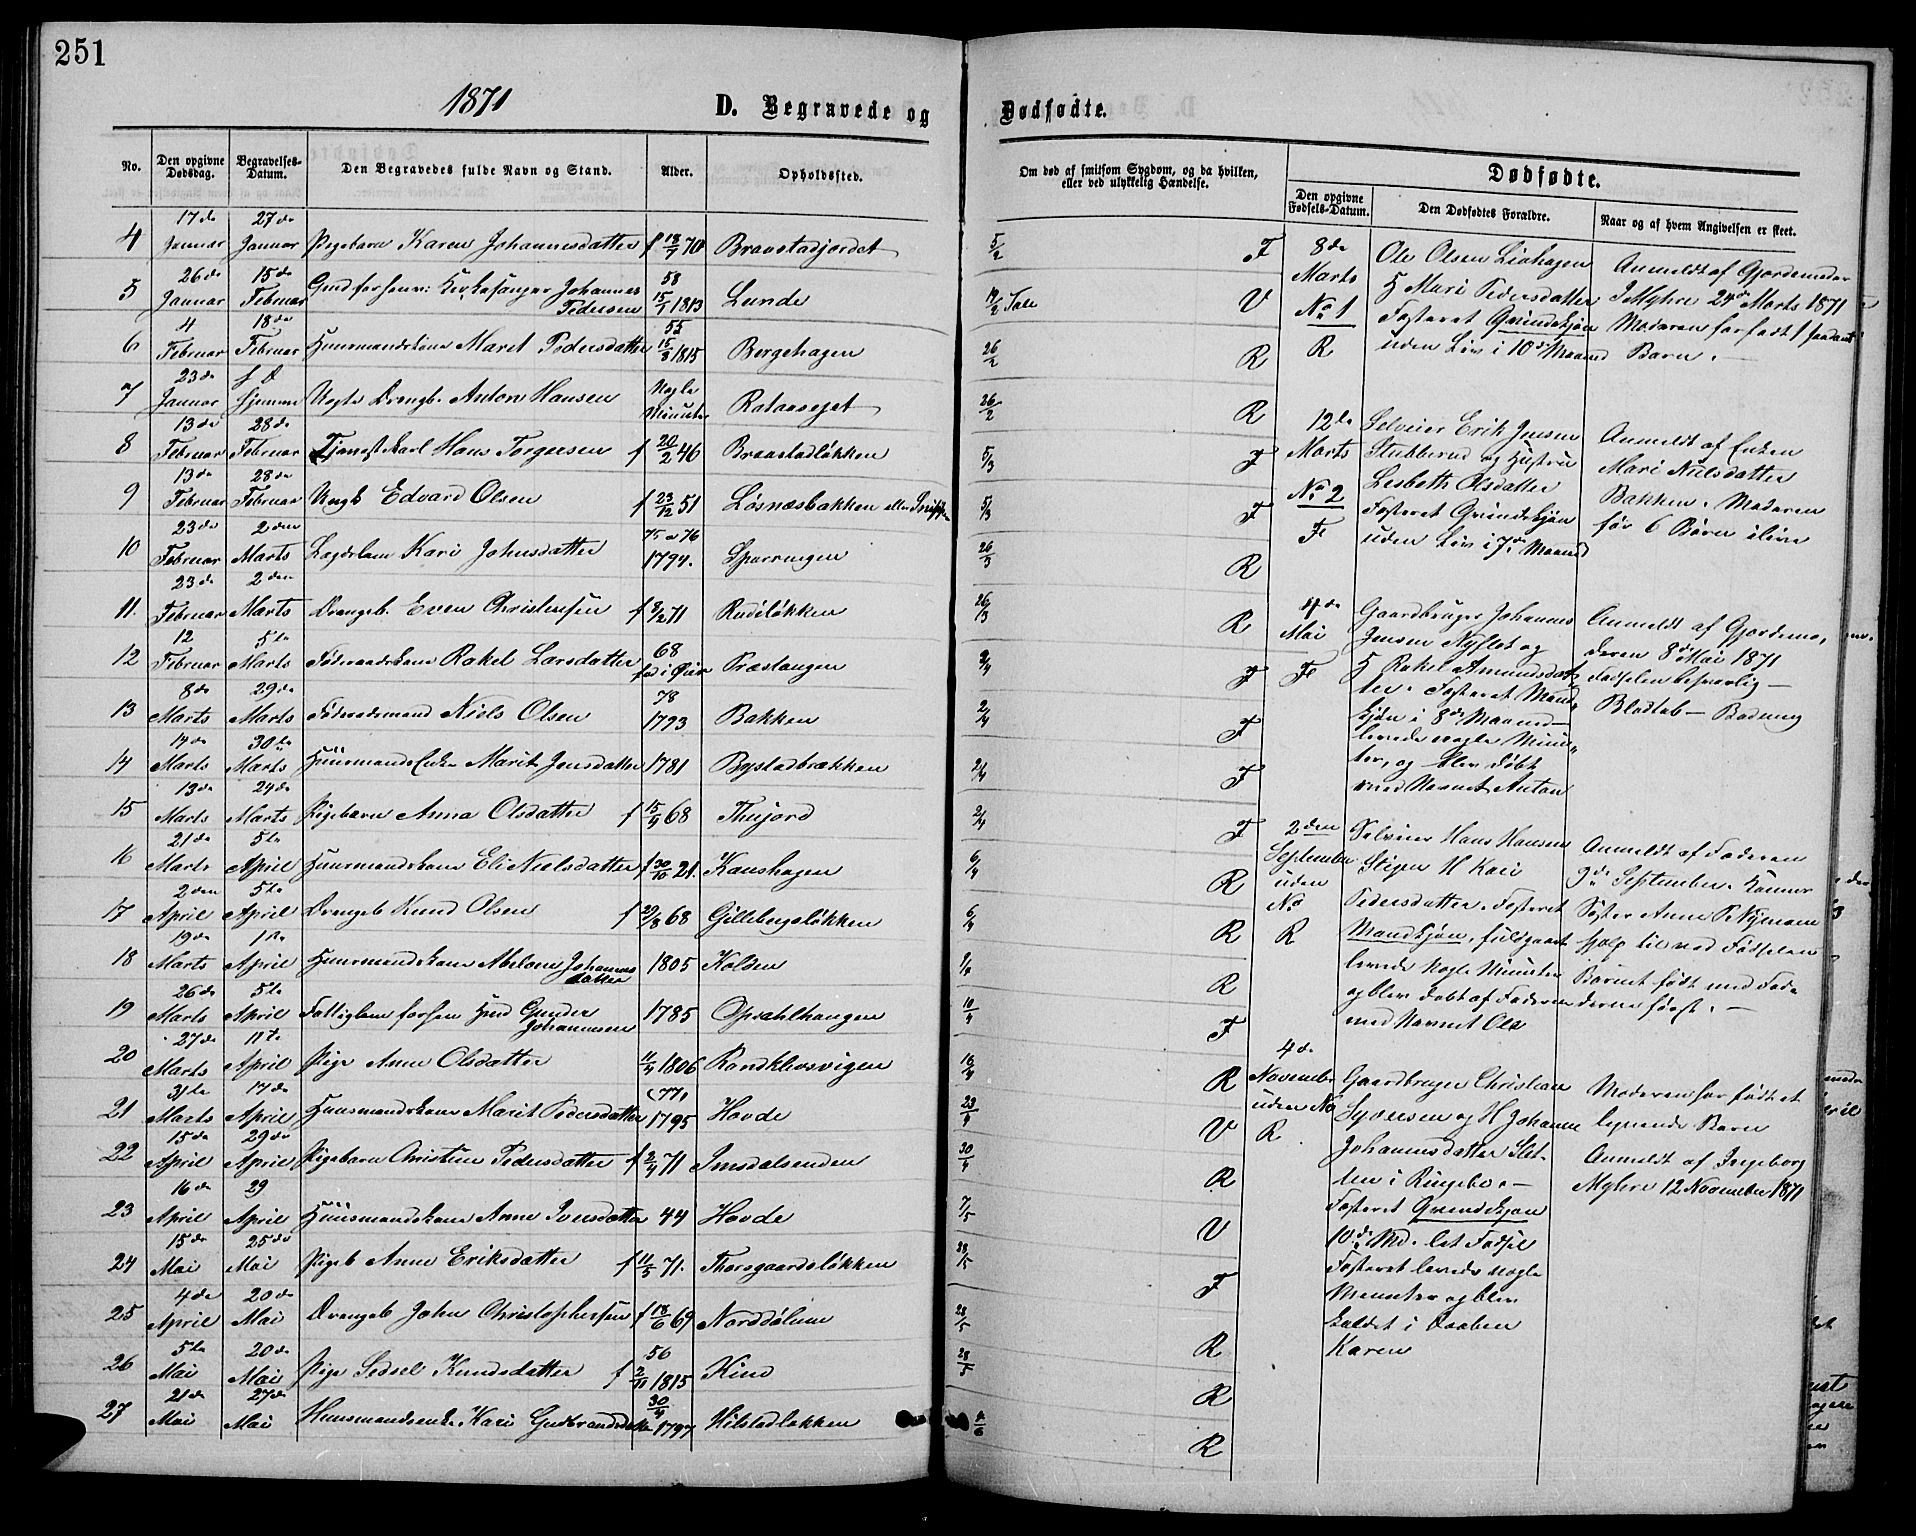 251
1871
D. Begravede og
No.
Den opgivne Dødsdag.
Begravelses-Datum.
Den Begravedes fulde Navn og Stand.
Alder.
Opholdssted.
4 17de Januar 27de Januar Pigebarn Karen Johannesdatter f 18/7 70 Braastadjordet
5 26de Januar 15de Februar Kirkesanger Johannes Pedersen 58 15/1 1813 Lunde
6 4 Februar 18de Februar Huusmandskone Marit Pedersdatter 55 15/8 1815 Bergehagen
7 23de Januar Hjemme Drengb. Anton Hansen Nogle Minuter
8 13de Februar 28de Februar Tjenestekarl Hans Torgersen f 20/2 46 Braastadløkken
9 13de Februar 28de Februar Ungk Edvard Olsen f 23/12 51 Løsnæsbakken eller
10 23de Februar 2den Marts Lægdslem Kari Johnsdatter 75 a 76 1794. Sparringen
11. 23de Februar 2den Marts Drengeb. Even Christensen f 8/2 71 Rudsløkken
12 12 Februar 5te Marts Føderaadskone Rakel Larsdatter 68 fød i Øier Præstangen
13 8de Marts 29de Marts Føderaadsmand Niels Olsen 78 1793 Bakken
14 14de Marts 30te Marts Huusmands Enke Marit Jensdatter 1781 Bystadbrækken
15 13de Marts 24de Marts Pigebarn Anna Olsdatter f 15/9 68 Thujord
16 21de Marts 5te April Huusmandskone Eli Nielsdatter f 30/10 21. Kanshagen
17 2den April 5te April Drengeb Knud Olsen f 29/8 68 Gillebergsløkken
18 19de Marts 1ste April Huusmandskone Abelone Johannesdatter 1805 Kolden
19 26de Marts 5te April Fattiglem Gunder Johannesen 1785 Opsahlhaugen
20 27de Marts 11te April Pige Anne Olsdatter 11/4 1806 Randklevsvigen
21 31te Marts 17de April Huusmandskone Marit Pedersdatter (77) 1795 Hovde
22 15de April 29de April Pigebarn Christine Pedersdatter f 2/4 71 Imsdalsenden
23 16de April 29 April Huusmandskone Anne Iversdatter 44 Hovde
24 15de Mai 25de Mai Pigeb Anne Eriksdatter f 11/5 71. Thorsgaardsløkken
25 4de April 20de Mai Drengeb John Christophersen f 18/6 69 Norddølum
26 5te Mai 20de Mai Pige Sidsel Knudsdatter 56 f 2/11 1815 Kind
27 21de Mai 27de Mai Huusmandsenke Kari Gudbrandsdatter 30/4 1797 Hilstadløkken
Dødfødte.
Om død af smitsom Sygdom, og da hvilken,
eller ved ulykkelig Hændelse.
Dødfødte.
Den opgivne Fødsels-Datum.
Den Dødfødtes Forældre.
Naar og af hvem Angivelsen er skeet.
5/2 F
V
26/2 R
26/2 R
5/3 F
5/3 F
26/3 R
26/3 R
2/4 F
2/4 F
2/4 F
2/4 F
6/4 R
6/4 R
R
10/4 F
16/4 R
23/4 V
30/4 R
7/5 V
28/5 F
28/5 R
28/5 R
R
8de Marts No 1 R
Ole Olsen Liahagen
H Mari Pedersdatter
Fosteret Qvindekjøn
uden Liv i 10de Maaned
Anmeldt af Gjordemoder
I Myhre 24de Marts 1871
Moderen har født 1 saadant
Barn. —
12te Marts No 2 F
Selveier Erik Jensen
Stubberud og Hustru
Lisbeth Olsdatter
Fosteret Qvindekjøn
uden Liv i 7de Maaned
Anmeldt af Enken
Mari Nielsdatter
Bakken. Moderen
før 6 Børn ilive
4de Mai F
Gaardbruger Johannes
Jensen Nyflot og
H Rakel Amundsdat-
ter. Fosteret Mand-
kjøn i 8de Maaned —
levede nogle Minu-
ter, og blev døbt
med Navnet Anton
Anmeldt af Gjordemo-
deren 8de Mai 1871
Fødselen besværlig —
Blodtab —
2den September uden No R
Selveier Hans Hansen
Stigen H Kari
Pedersdatter. Fosteret
Mandkjøn, fuldgaaet
levede nogle Minuter
og blev døbt af Faderen
med Navnet Ole
Anmeldt af Faderen
9de September. Konens
Søster Anne P. Nymoen
hjalp til ved Fødselen
Barnet født med Fød-
derne først. —
4de November uden No R
Gaardbruger Christian
Syversen og H Johanne
Johannesdatter Slet-
ten i Ringebo. —
Fosteret Qvindekjøn
10de Md. let Fødsel
Fosteret levede nogle
Minuter og blev
kaldet i Daaben
Karen
Moderen har født et
lignende Barn
Anmeldt af Ingeborg
Myhre 12 November 1871